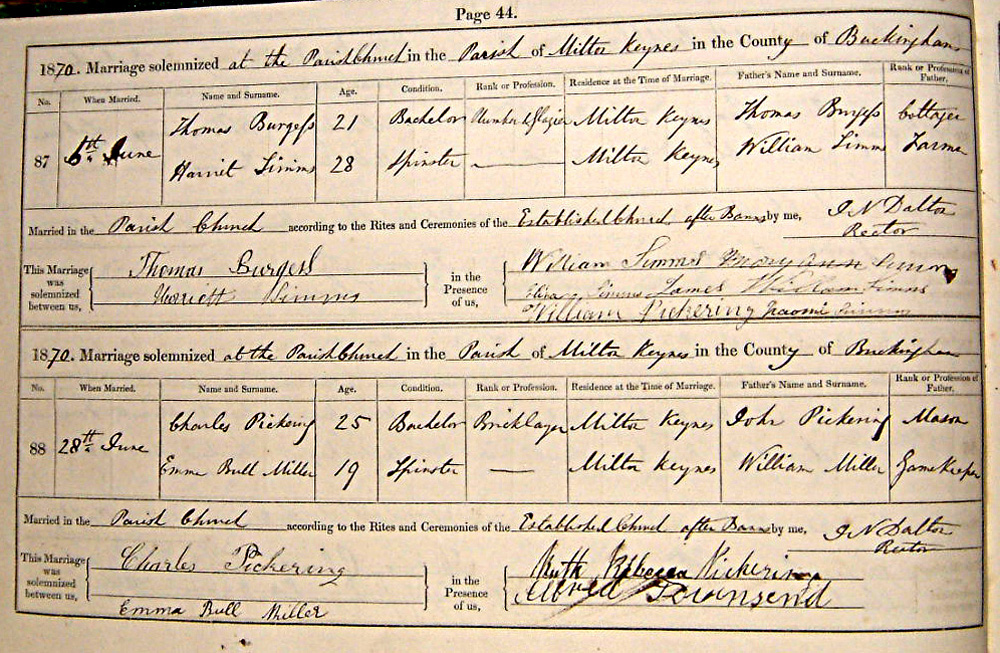 Page 44.
1870. Marriage solemnized at the Parish Church in the Parish of Milton Keynes in the County of Buckingham
No. When Married. Name and Surname. Age. Condition. Rank or Profession. Residence at the Time of Marriage. Father's Name and Surname. Rank or Profession of Father.
Thomas Burgess 21 Bachelor Plumber & Glazier Milton Keynes Thomas Burgess Cottager
87 6th June
Harriet Simms 28 Spinster — Milton Keynes William Simms Farmer
Married in the Parish Church according to the Rites and Ceremonies of the Established Church after Banns by me, J N Dalton
Rector
This Marriage was solemnized between us, Thomas Burgess in the Presence of us, William Simms Mary ann
Harriett Simms Eliza Simms James William Simms
William Pickering Naomi Simms
1870. Marriage solemnized at the Parish Church in the Parish of Milton Keynes in the County of Buckingham
No. When Married. Name and Surname. Age. Condition. Rank or Profession. Residence at the Time of Marriage. Father's Name and Surname. Rank or Profession of Father.
Charles Pickering 25 Bachelor Bricklayer Milton Keynes John Pickering Mason
88 28th June
Emma Bull Miller 19 Spinster — Milton Keynes William Miller Gamekeeper
Married in the Parish Church according to the Rites and Ceremonies of the Established Church after Banns by me, J N Dalton
Rector
This Marriage was solemnized between us, Charles Pickering in the Presence of us, Ruth Rebecca Pickering
Emma Bull Miller Alfred Townsend